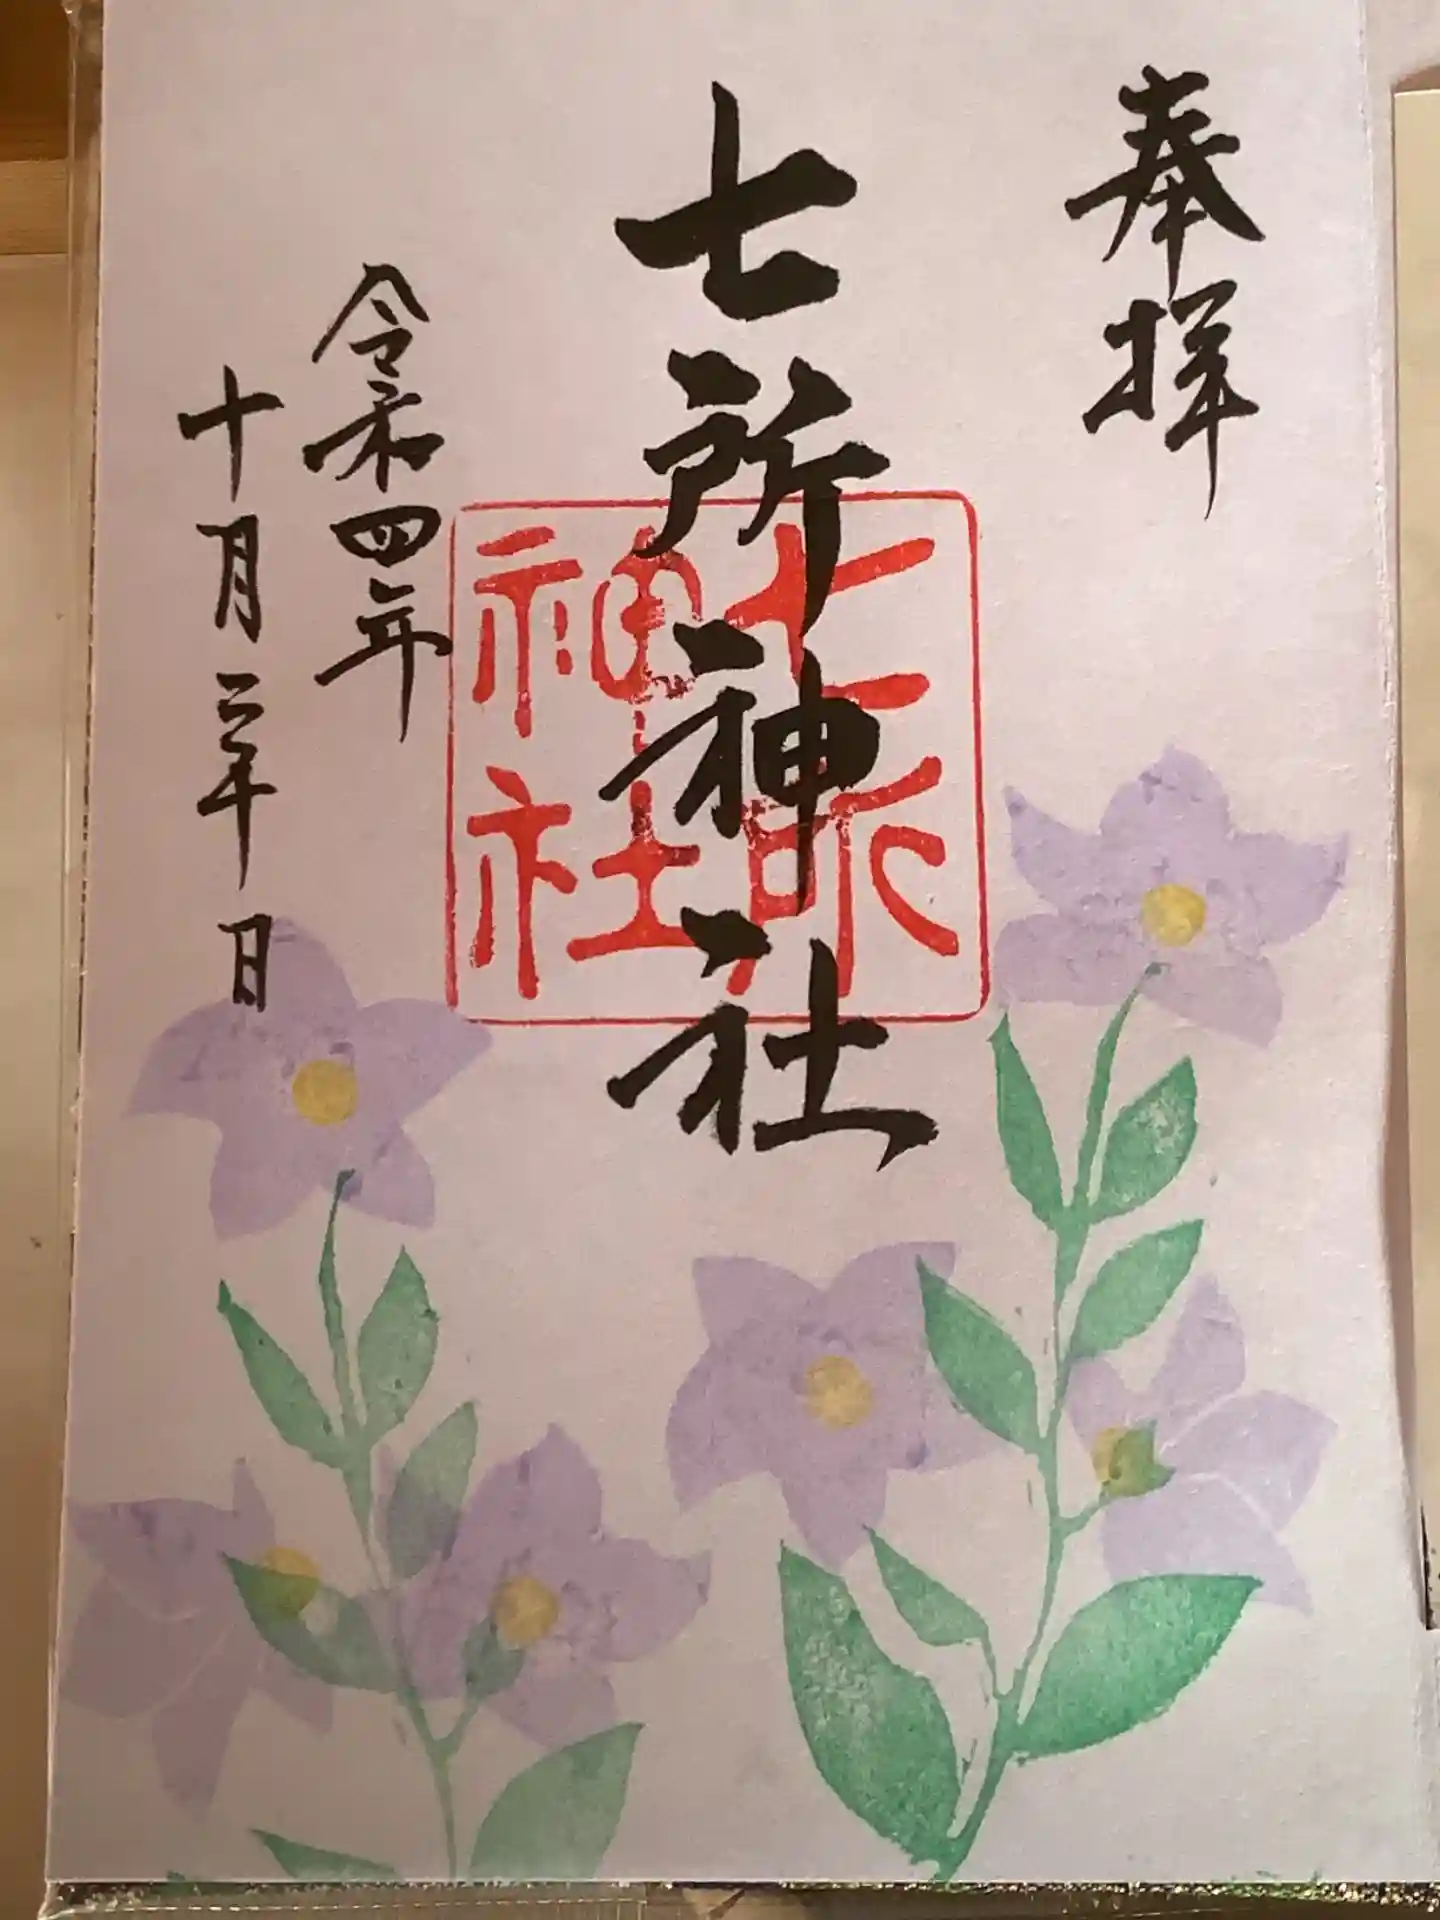 奉拝
七所神社
七所
神社
令和四年
十月二十日